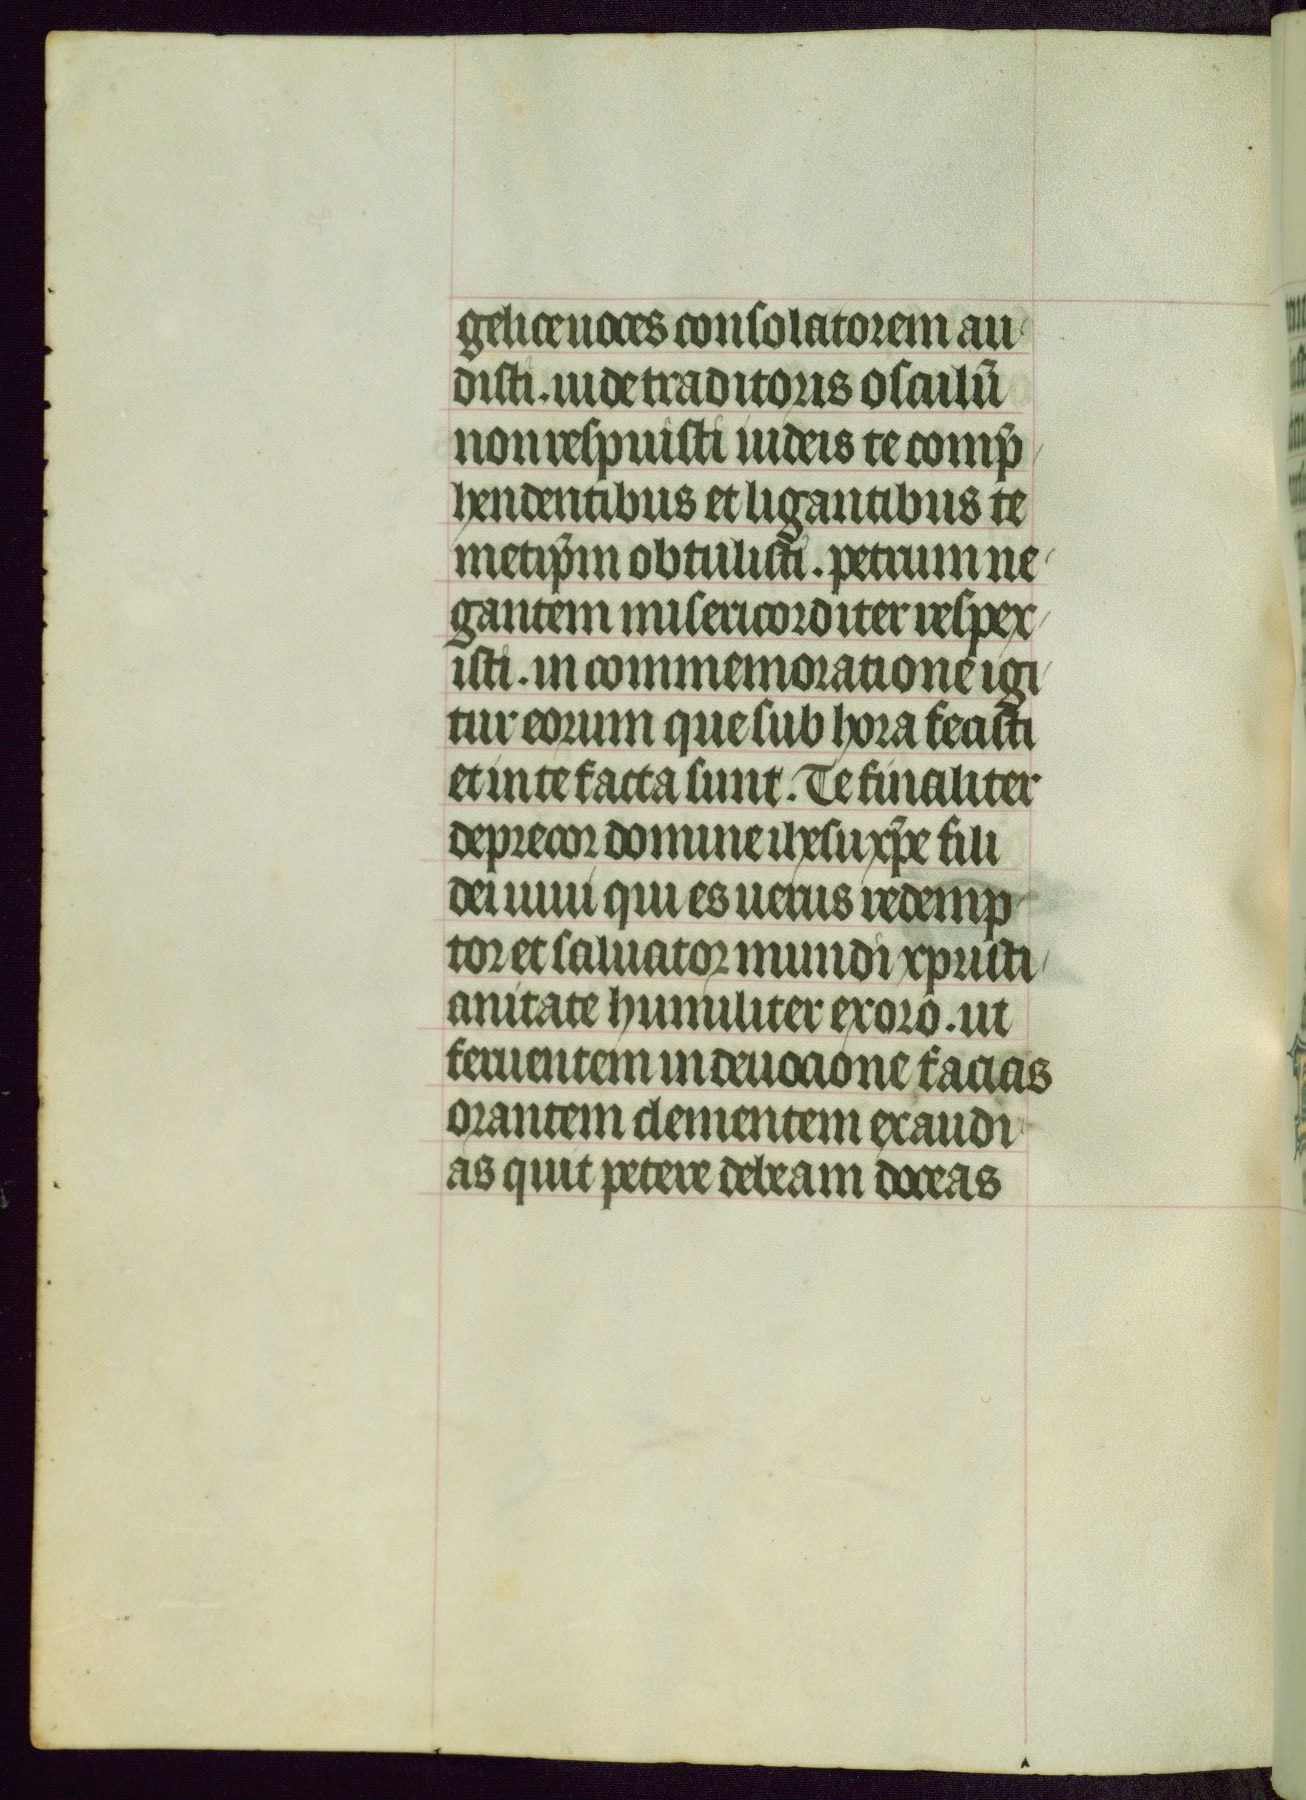 gelice uoces consolatorem au
disti. iude traditoris osculū
non respuisti iudeis te comp̄
hendentibus et ligantibus te
metip̄m obtulisti. petrum ne
gantem misericorditer respex
isti. in commemoratione igi
tur eorum que sub hora fecisti
et in te facta sunt. Te finaliter
deprecor domine ihesu xp̄e fili
dei uiui qui es uerus redemp
tor et saluator mundi xpristi
anitate humiliter exoro. ut
feruentem in deuocione facias
orantem clementem exaudi
as quit petere debeam doceas